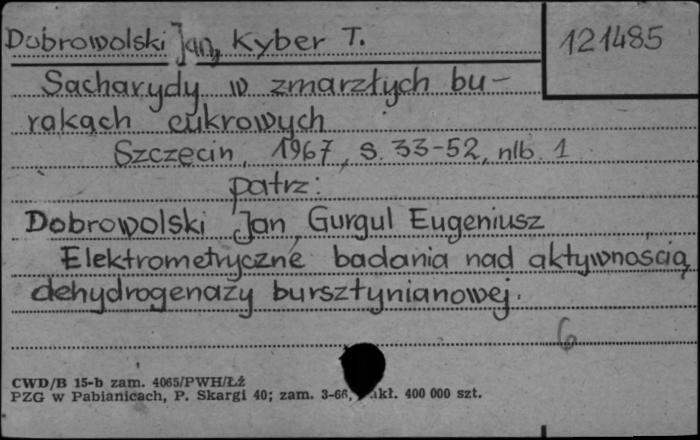 Dobrowolski Jan, Kyber T.
121485
Sacharydy w zmarzłych bu-
rakach cukrowych
Szczecin, 1967, s. 33-52, nlb. 1
patrz:
Dobrowolski Jan, Gurgul Eugeniusz
Elektrometryczne badania nad aktywnością
dehydrogenazy bursztynianowej.
6
CWD/B 15-b zam. 4065/PWH/Łź
PZG w Pabianicach, P. Skargi 40; zam. 3-66, nakł. 400 000 szt.